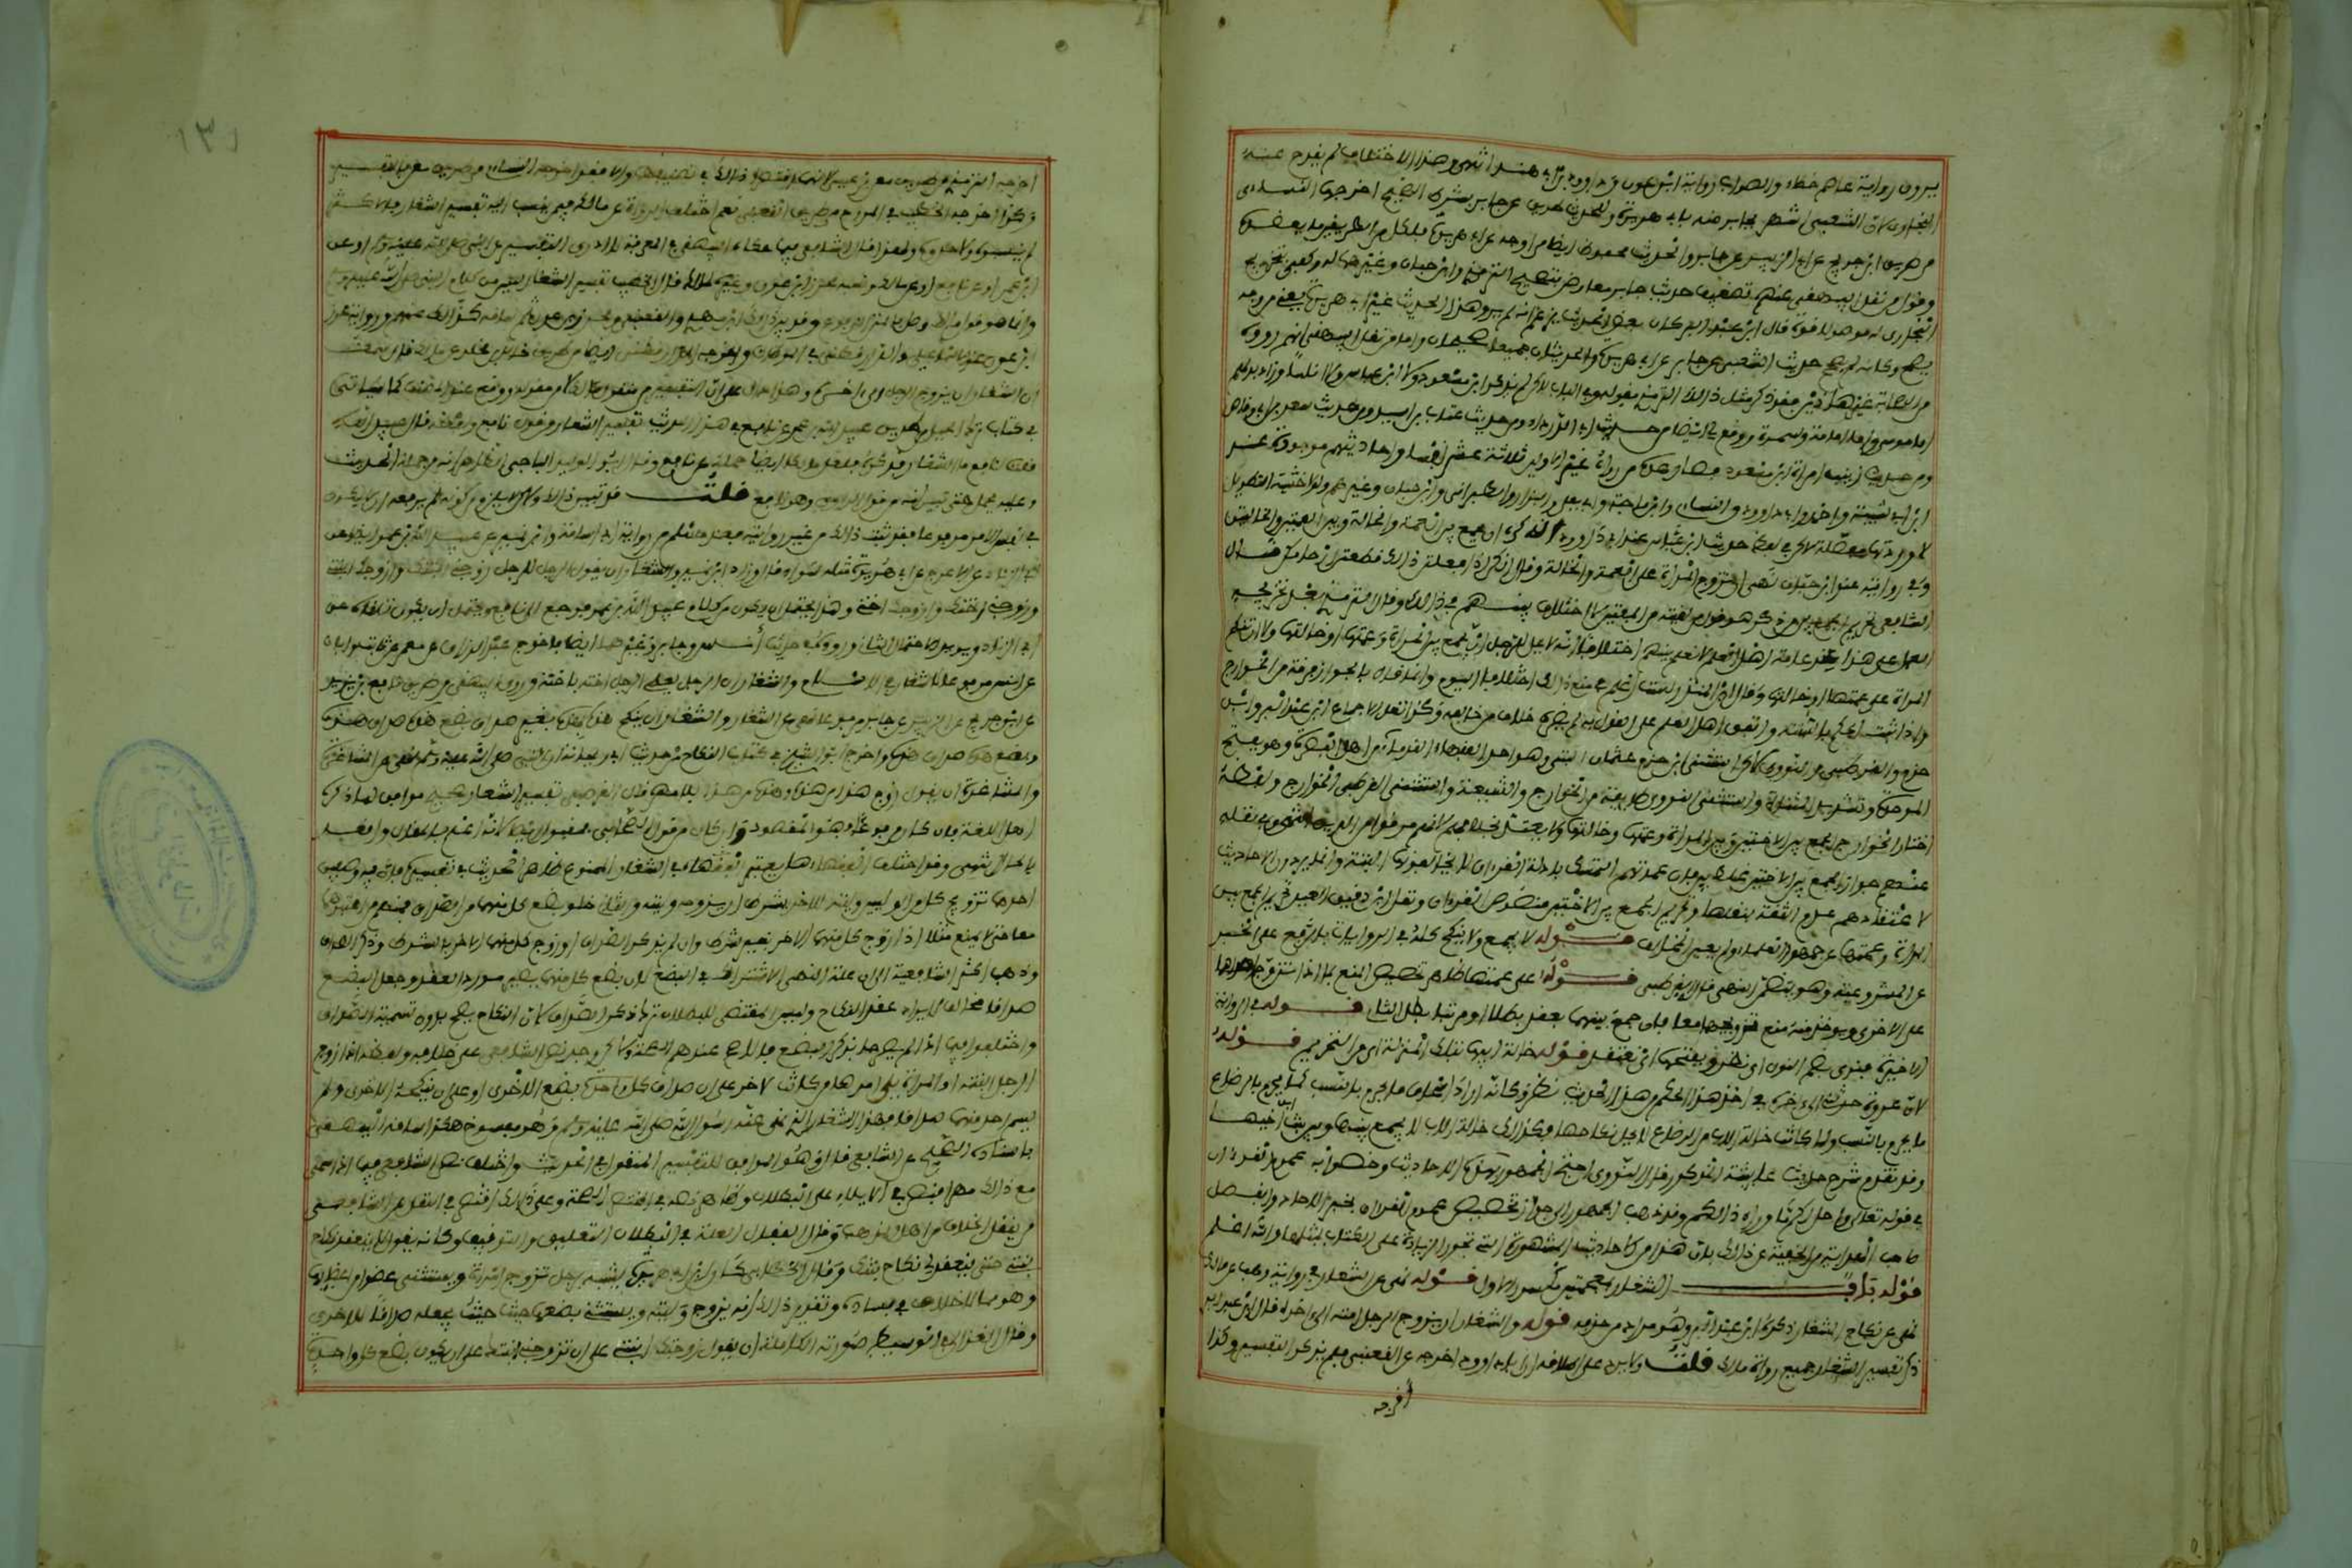 يرون رواية عاصم خطاء والصواب رواية ابن عون وداوود بن ابي هند انتهى وهذا الاختلاف لم يقدح عند
البخاري لان الشعبي اشهر بجابر منه بابي هريرة وللحديث طريق عن جابر بشرط الصحيح اخرجها النساءي
من طريق ابن جريج عن ابي الزبير عن جابر والحديث محفوظ ايضا من اوجه عن ابي هريرة فلكل من الطريقين ما يعضده
وقول من نقل البيهقي عنهم تضعيف حديث جابر معارض بتصحيح الترمذي وابن حبان وغيرهما له وكفى بتخريج
البخاري له موصولا قوة قال ابن عبد البر كان بعض اهل الحديث يزعم انه لم يرو هذا الحديث غير ابي هريرة يعني من وجه
يصح وكانه لم يصح حديث الشعبي عن جابر وعن ابي هريرة والحديثان جميعا صحيحان واما من نقل البيهقي انهم رووه
من الصحابة غير هذين فقد ذكر مثل ذلك الترمذي بقوله وفي الباب لكن لم يذكر ابن مسعود ولا ابن عباس ولا انسا وزاد بدلهم
ابا موسى وابا امامة وسمرة ووقع لي ايضا من حديث ابي الدرداء ومن حديث عتاب بن اسيد ومن حديث سعد بن ابي وقاص
ومن حديث زينب امراة ابن مسعود فصار عدة من رواه غير الاولين ثلاثة عشر نفسا واحاديثهم موجودة عند
ابن ابي شيبة واحمد وابي داوود والنساءي وابن ماجة وابي يعلى والبزار والطبراني وابن حبان وغيرهم ولولا خشية التطويل
لاوردتها مفصلة لكن في لفظ حديث ابن عباس عند ابي داوود انه كره ان يجمع بين العمة والخالة وبين العمتين والخالتين
وفي روايته عند ابن حبان نهى ان تزوج المراة على العمة والخالة وقال انكن اذا فعلتن ذلك قطعتن ارحامكن قال
الشافعي تحريم الجمع بين من ذكر هو قول من لقيته من المفتين لا اختلاف بينهم في ذلك وقال الترمذي بعد تخريجه
العمل على هذا عند عامة اهل العلم لا نعلم بينهم اختلافا انه لا يحل للرجل ان يجمع بين المراة وعمتها او خالتها ولا ان تنكح
المراة على عمتها او خالتها وقال ابن المنذر لست اعلم في منع ذلك اختلافا اليوم وانما قال بالجواز فرقة من الخوارج
واذا ثبت الحكم بالسنة واتفق اهل العلم على القول به لم يضره خلاف من خالفه وكذا نقل الاجماع ابن عبد البر وابن
حزم والقرطبي والنووي لكن استثنى ابن حزم عثمان البتي وهو احد الفقهاء القدماء من اهل البصرة وهو بفتح
الموحدة وتشديد المثناة واستثنى النووي طايفة من الخوارج والشيعة واستثنى القرطبي الخوارج ولفظه
اختار الخوارج الجمع بين الاختين وبين المراة وعمتها وخالتها ولا يعتد بخلافهم لانهم مرقوا من الدين انتهى وفي نقله
عنهم جواز الجمع بين الاختين غلط بين فان عمدتهم التمسك بادلة القرءان لا يخالفونها البتة وانما يردون الاحاديث
لاعتقادهم عدم الثقة بنقلتها وتحريم الجمع بين الاختين منصوص القرءان ونقل ابن دقيق العيد تحريم الجمع بين
المراة وعمتها عن جمهور العلماء ولم يعين المخالف قوله لا يجمع ولا ينكح كله في الروايات بالرفع على الخبر
عن المشروعية وهو يتضمن النهي قاله القرطبي قوله على عمتها ظاهره تخصيص المنع بما اذا تزوج احداهما
على الاخرى ويوخذ منه منع تزويجهما معا فان جمع بينهما بعقد بطلا او مرتبا بطل الثاني قوله في الرواية
الاخيرة فنرى بضم النون اي نظن وبفتحها اي نعتقد قوله خالة ابيها بتلك المنزلة اي من التحريم قوله
لان عروة حدثني الى ءاخره في اخذ هذا الحكم من هذا الحديث نظر وكانه اراد الحاق ما يحرم بالنسب كما يحرم بالرضاع
ما يحرم بالنسب ولما كانت خالة الاب من الرضاع لا يحل نكاحها فكذلك خالة الاب لا يجمع بينها وبين بنت ابن اخيها
وقد تقدم شرح حديث عايشة المذكور قال النووي احتج الجمهور بهذه الاحاديث وخصوا به عموم القرءان
في قوله تعالى واحل لكم ما وراء ذالكم وقد ذهب الجمهور الى جواز تخصيص عموم القرءان بخبر الاحاد وانفصل
صاحب الهداية من الحنفية عن ذلك بان هذا من الاحاديث المشهورة التي تجوز الزيادة على الكتاب بمثلها والله اعلم
قوله باب الشغار بمعجمتين مكسور الاول قوله نهى عن الشغار في رواية ابن وهب عن مالك
نهى عن نكاح الشغار ذكره ابن عبد البر وهو مراد من حذفه قوله والشغار ان يزوج الرجل ابنته الى اخره قال ابن عبد البر
ذكر تفسير الشغار جميع رواة مالك قلت ولا يرد على اطلاقه ان ابا داوود اخرجه عن القعنبي فلم يذكر التفسير وكذا
اخرجه
اخرجه الترمذي من طريق معن بن عيسى لانهما اختصرا ذلك في تصنيفهما والا فقد اخرجه النساءي من طريق معن بالتفسير
وكذا اخرجه الخطيب في المدرج من طريق القعنبي نعم اختلف الرواة عن مالك فيمن ينسب اليه تفسير الشغار فالاكثر
لم ينسبوه لاحد ولهذا قال الشافعي فيما حكاه البيهقي في المعرفة لا ادري التفسير عن النبي صلى الله عليه وسلم او عن
ابن عمر او عن نافع او عن مالك ونسبه محرز ابن عون وغيره لمالك قال الخطيب تفسير الشغار ليس من كلام النبي صلى الله عليه وسلم
وانما هو قول مالك وصل بالمتن المرفوع وقد بين ذلك ابن مهدي والقعنبي ومحرز بن عون ثم ساقه كذلك عنهم ورواية محرز
ابن عون عند الاسماعيلي والدارقطني في الموطات واخرجه الدارقطني ايضا من طريق خالد بن مخلد عن مالك قال سمعت
ان الشغار ان يزوج الرجل الى اخره وهذا دال على ان التفسير من منقول مالك لا من مقوله ووقع عند المصنف كما سياتي
في كتاب ترك الحيل من طريق عبيد الله بن عمر عن نافع في هذا الحديث تفسير الشغار من قول نافع ولفظه قال عبيد الله
قلت لنافع ما الشغار فذكره فلعل مالكا ايضا حمله عن نافع وقال ابو الوليد الباجي الظاهر انه من جملة الحديث
وعليه يحمل حتى يتبين انه من قول الراوي وهو نافع قلت قد تبين ذلك ولكن لا يلزم من كونه لم يرفعه ان لا يكون
في نفس الامر مرفوعا فقد ثبت ذلك من غير روايته فعند مسلم من رواية ابي اسامة وابن نمير عن عبيد الله بن عمر ايضا عن
ابي الزناد عن الاعرج عن ابي هريرة مثله سواء قال وزاد ابن نمير والشغار ان يقول الرجل للرجل زوجني ابنتك وازوجك ابنتي
وزوجني اختك وازوجك اختي وهذا يحتمل ان يكون من كلام عبيد الله بن عمر فيرجع الى نافع ويحتمل ان يكون تلقاه عن
ابي الزناد ويويد الاحتمال الثاني وروده في حديث انس وجابر وغيرهما ايضا فاخرج عبد الرزاق عن معمر عن ثابت وابان
عن انس مرفوعا لا شغار في الاسلام والشغار ان الرجل يعطي الرجل اخته باخته وروى البيهقي من طريق نافع بن يزيد
عن ابن جريج عن ابي الزبير عن جابر مرفوعا نهى عن الشغار والشغار ان ينكح هذه بهذه بغير صداق بضع هذه صداق هذه
وبضع هذه صداق هذه واخرج ابو الشيخ في كتاب النكاح من حديث ابي ريحانة ان النبي صلى الله عليه وسلم نهى عن المشاغرة
والمشاغرة ان يقول زوج هذا من هذه وهذه من هذا بلا مهر قال القرطبي تفسير الشغار صحيح موافق لما ذكره
اهل اللغة فان كان مرفوعا وهو المقصود وان كان من قول الصحابي فمقبول ايضا لانه اعلم بالمقال واقعد
بالحال انتهى وقد اختلف الفقهاء هل يعتبر الفقهاء في الشغار الممنوع ظاهر الحديث في تفسيره فان فيه وصفين
احدهما تزويج كل من الوليين وليته للاخر بشرط ان يزوجه وليته والثاني خلو بضع كل منهما من الصداق فمنهم من اعتبرهما
معا حتى لا يمنع مثلا اذا زوج كل منهما الاخر بغير شرط وان لم يذكر الصداق او زوج كل منهما الاخر بالشرط وذكر الصداق
وذهب اكثر الشافعية الى ان علة النهي الاشتراك في البضع لان بضع كل منهما يصير مورد العقد وجعل البضع
صداقا مخالف لايراد عقد النكاح وليس المقتضي للبطلان ترك ذكر الصداق لان النكاح يصح بدون تسمية الصداق
واختلفوا فيما اذا لم يصرحا بذكر البضع فالاصح عندهم الصحة ولكن وجد نص الشافعي على خلافه ولفظه اذا زوج
الرجل ابنته او المراة يلي امرها من كانت لاخر على ان صداق كل واحدة بضع الاخرى او على ان ينكحه الاخرى ولم
يسم احد منهما صداقا فهذا الشغار الذي نهى عنه رسول الله صلى الله عليه وسلم وهو مفسوخ هكذا ساقه البيهقي
باسناده الصحيح عن الشافعي قال وهو الموافق للتفسير المنقول في الحديث واختلف نص الشافعي فيما اذا سمى
مع ذلك مهرا فنص في الاملاء على البطلان وظاهر نصه في المختصر الصحة وعلى ذلك اقتصر في النقل عن الشافعي
من ينقل الخلاف من اهل المذاهب وقال القفال العلة في البطلان التعليق والتوقيف وكانه يقول لا ينعقد نكاح
بنتي حتى ينعقد لي نكاح بنتك وقال الخطابي كان ابن ابي هريرة يشبهه برجل تزوج امراة ويستثني عضوا من اعضايها
وهو مما لا خلاف في فساده وتقدير ذلك انه يزوج وليته ويستثني بضعها حيث يجعله صداقا للاخرى
وقال الغزالي في الوسيط صورته الكاملة ان يقول زوجتك ابنتي على ان تزوجني ابنتك على ان يكون بضع كل واحدة